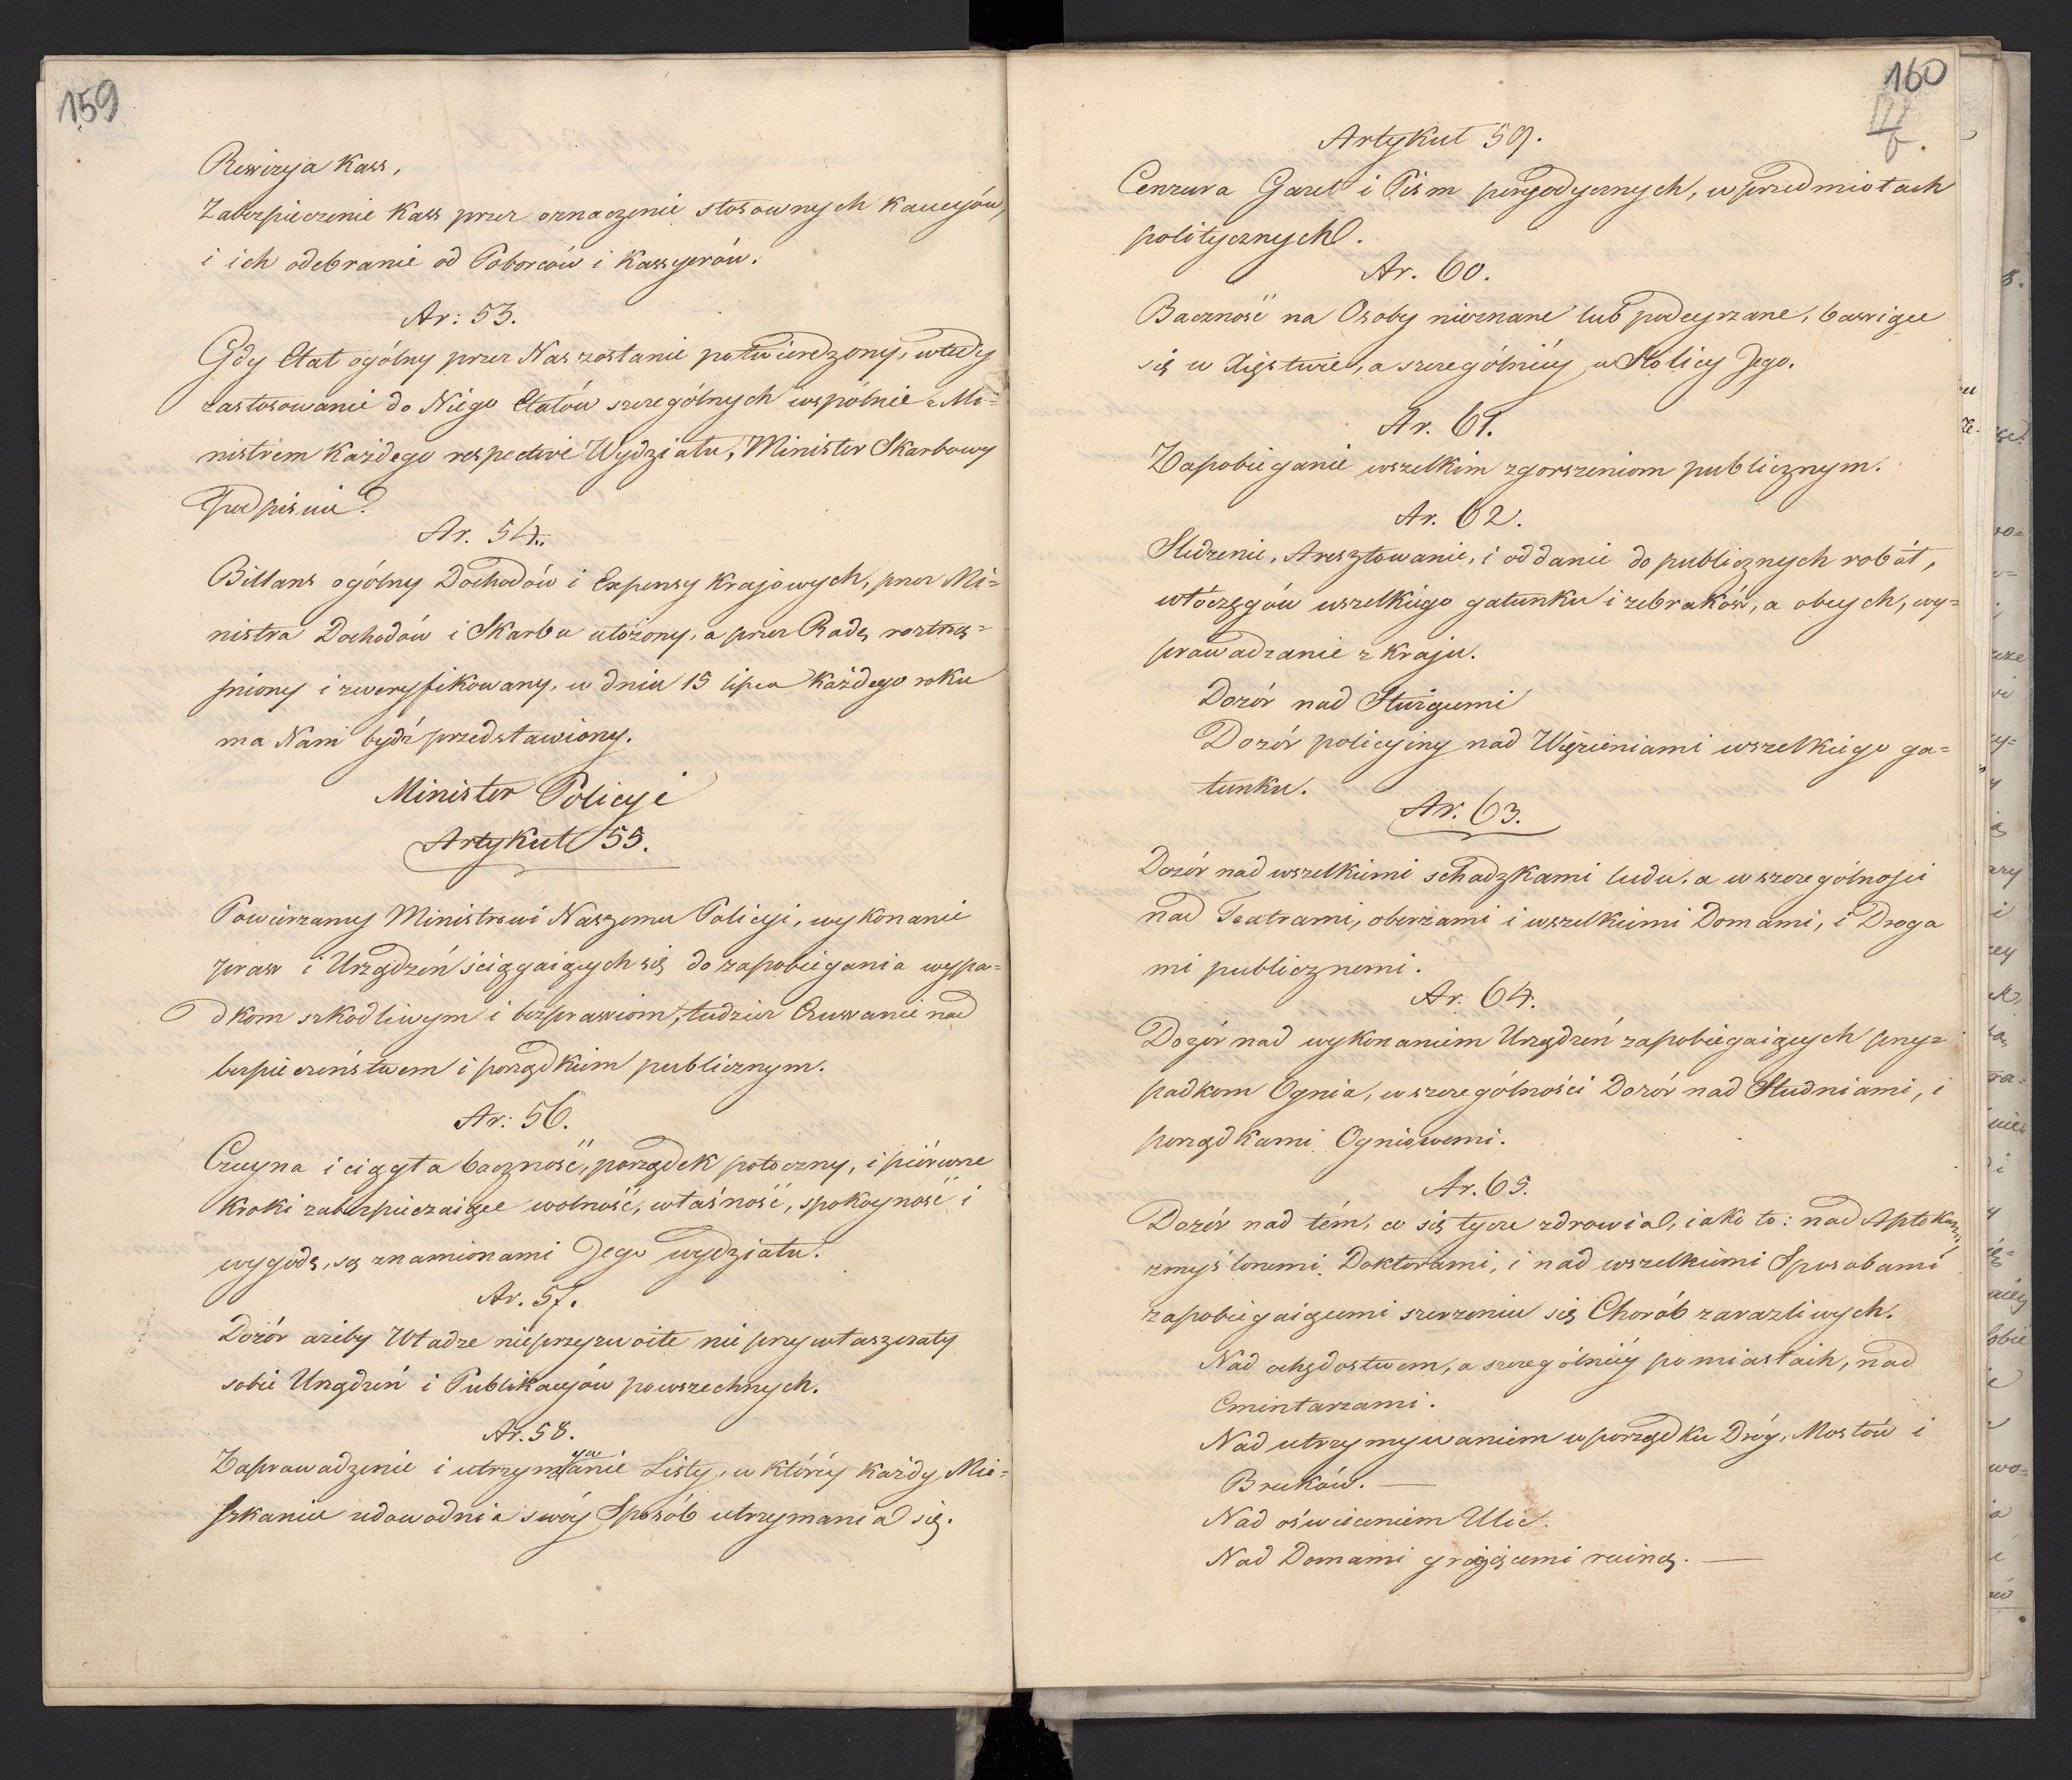 159
Rewizya Kass,
Zabezpieczenie Kass przez oznaczenie stosownych Kaucyów,
i ich odebranie od Poborców i Kassyerów.
Ar: 53.
Gdy Etat ogólny przez Nas zostanie potwierdzony, wtedy
zastosowanie do Niego Etatów szczególnych wspólnie z Mi=
nistrem każdego respective Wydziału, Minister Skarbowy
podpisuie.
Ar. 54.
Billans ogólny Dochodów i Expensy Krajowych, przez Mi=
nistra Dochodów i Skarbu ułożony, a przez Radę roztrzą=
śniony i zweryfikowany, w dniu 15 lipca każdego roku
ma Nam bydź przedstawiony.
Minister Policyi
Artykuł 55.
Powierzamy Ministrowi Naszemu Policyi, wykonanie
praw i Urządzeń ściągaiących się do zapobiegania wypa=
dkom szkodliwym i bezprawiom, tudzież Czuwanie nad
bezpieczeństwem i porządkiem publicznym.
Ar: 56.
Czuyna i ciągła baczność, porządek potoczny, i piérwsze
Kroki zabezpieczaiące wolność, własność, spokoyność i
wygodę, są znamionami Jego wydziału.
Ar. 57.
Dozór ażeby Władze nieprzyzwoite nie przywłaszczały
sobie Urządzeń i Publikacyów powszechnych.
Ar. 58.
Zaprowadzenie i utrzymywanie Listy, w któréy każdy Mie=
szkaniec udowodnia swóy Sposób utrzymania się.
160
III
b
Artykuł 59.
Cenzura Gazet i Pism peryodycznych, w przedmiotach
politycznych.
Ar. 60.
Baczność na Osoby nieznane lub podeyrzane, bawiące
się w Xięstwie, a szczególniéy w Stolicy Jego.
Ar. 61.
Zapobieganie wszelkim zgorszeniom publicznym.
Ar. 62.
Śledzenie, Aresztowanie, i oddanie do publicznych robót,
włóczęgów wszelkiego gatunku i żebraków, a obcych, wy=
prowadzanie z kraju.
Dozór nad Sługami
Dozór policyiny nad Więzieniami wszelkiego ga=
tunku.
Ar. 63.
Dozór nad wszelkiemi schadzkami ludu, a w szczególności
nad Teatrami, oberżami i wszelkiemi Domami, i Droga
mi publicznemi.
Ar. 64.
Dozór nad wykonaniem Urządzeń zapobiegaiących przy=
padkom Ognia, w szczególności Dozór nad Studniami, i
porządkami Ogniowemi.
Ar. 65.
Dozór nad tém, co się tycze zdrowia, iako to: nad Aptekami,
zmyślonemi Doktorami, i nad wszelkiemi Sposobami
zapobiegaiącemi szerzeniu się Chorób zaraźliwych.
Nad ochędostwem, a szczególniéy po miastach, nad
Cmintarzami.
Nad utrzymywaniem w porządku Dróg, Mostów i
Bruków. —
Nad oświeceniem Ulic.
Nad Domami grożącemi ruiną. —